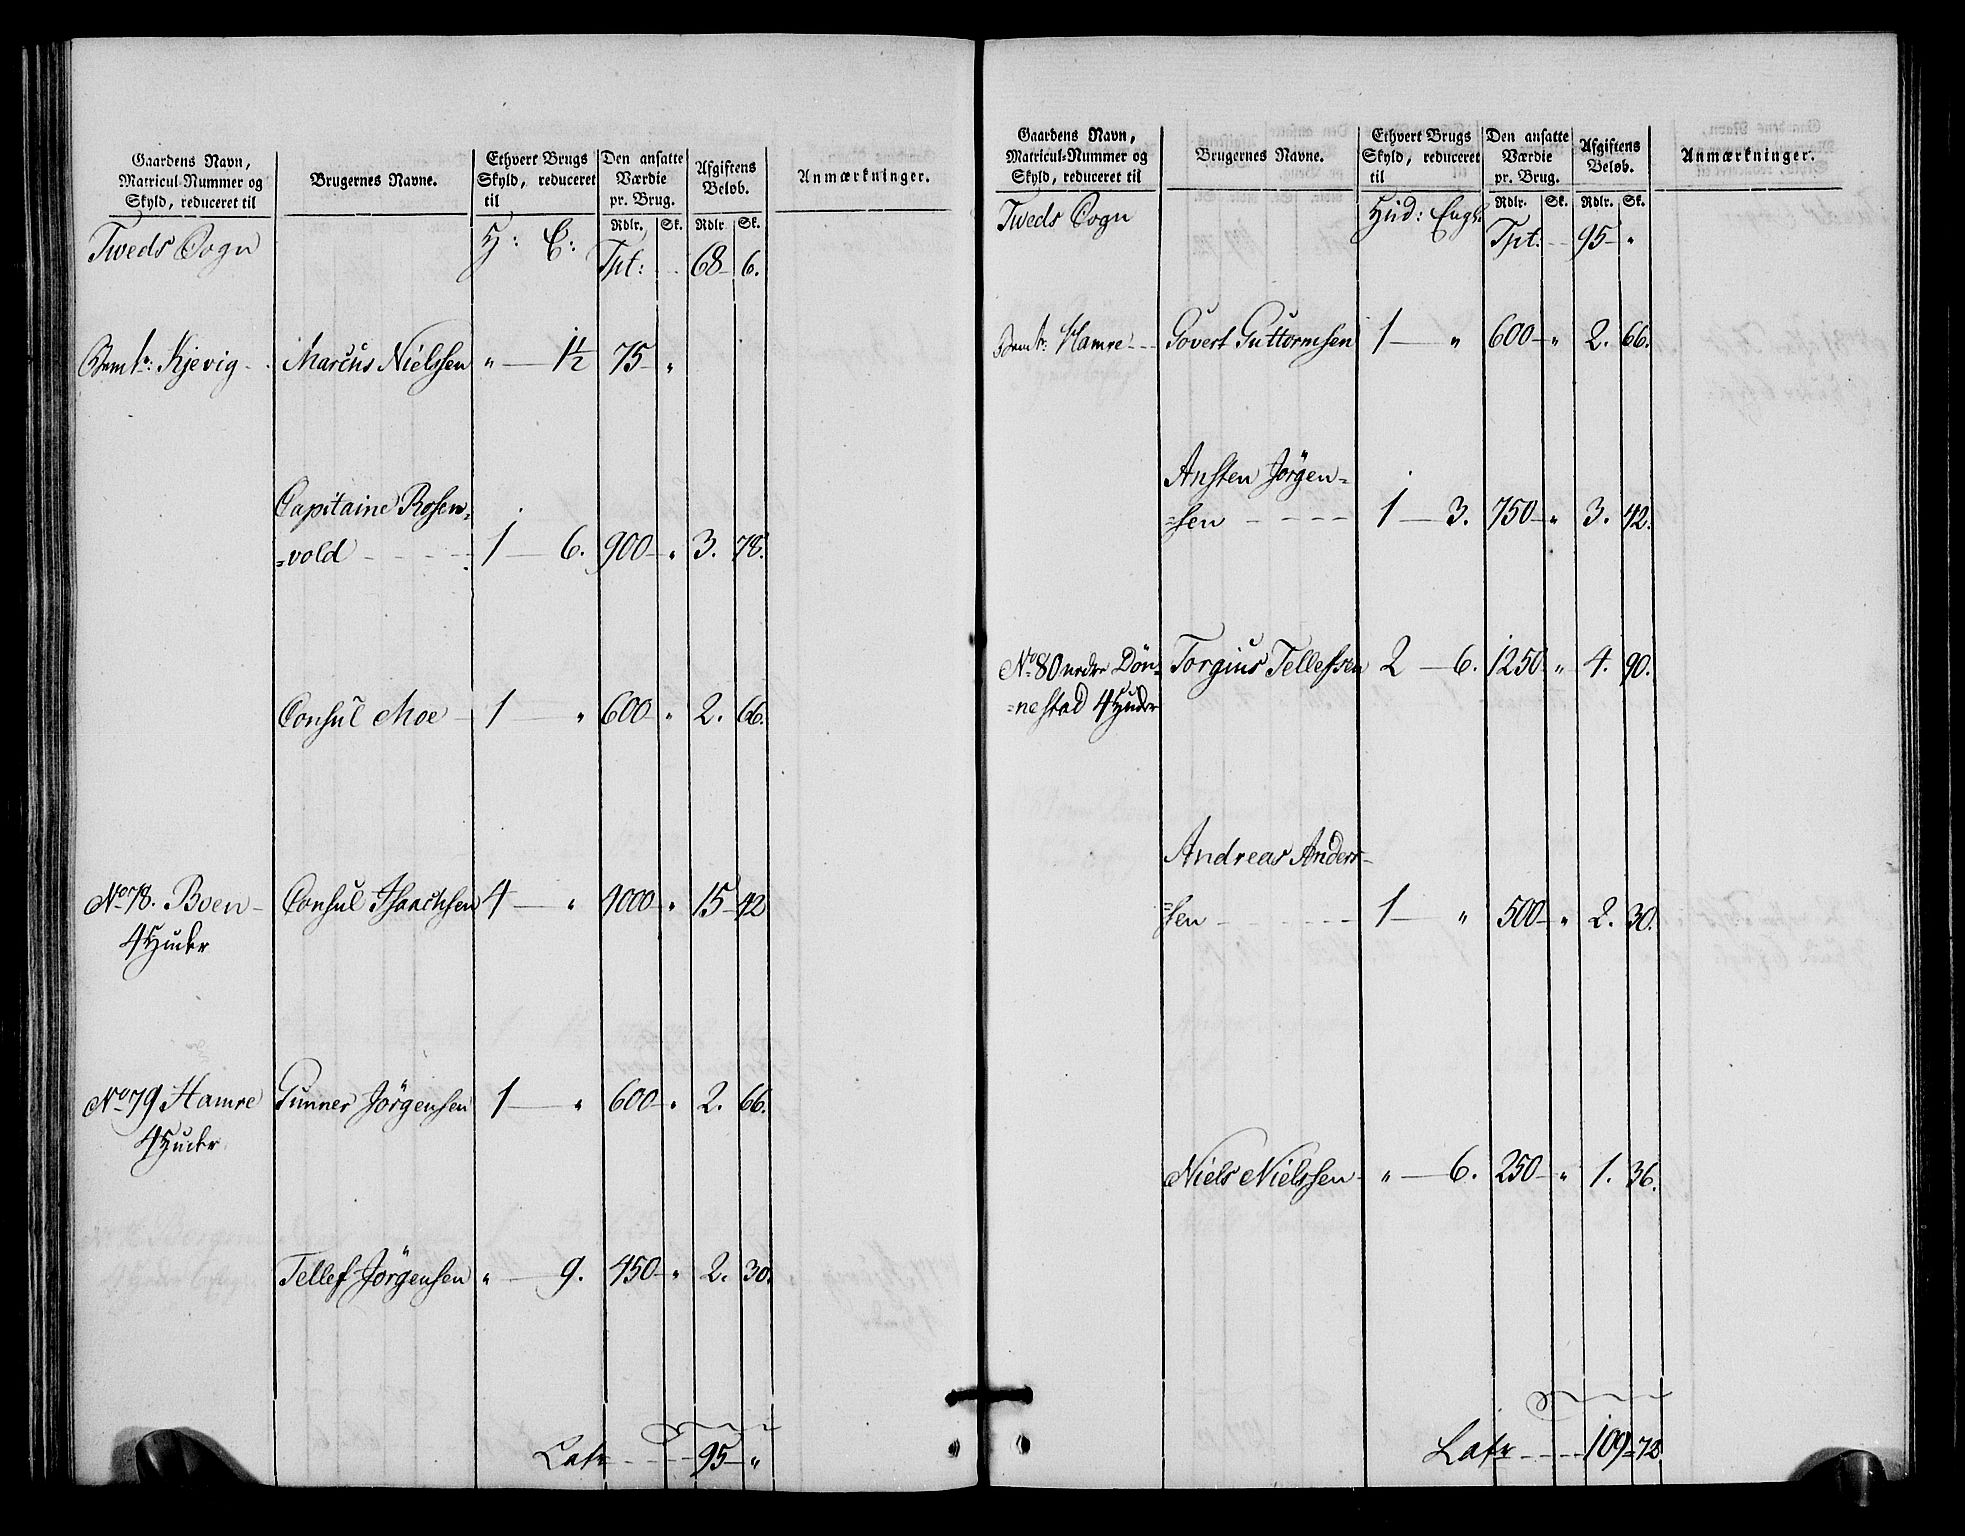 Gaardens Navn, Matricul-Nummer og Skyld, reduceret til | Brugernes Navne. | Ethvert Brugs Skyld, reduceret til | Den ansatte Værdie pr. Brug. | Afgiftens Beløb. | Anmærkninger.
Rdlr. Sk. Rdlr Sk.
Tweds Sogn H: E: Tpt: 68 6.
Kjevig Marcus Nielssen " 1½ 75 "
Capitaine Rosen=
=vold 1 6. 900 " 3. 78.
Consul Moe 1 " 600 " 2. 66.
No 78. Boen Consul Isaachsen 4 " 4000 " 15 42
4 Huder
No 79 Hamre Gunner Jörgensen 1 " 600 " 2. 66.
4 Huder
Tellef Jörgensen " 9. 450 " 2. 30.
Latr 95 "
Gaardens Navn, Matricul-Nummer og Skyld, reduceret til | Brugernes Navne. | Ethvert Brugs Skyld, reduceret til | Den ansatte Værdie pr. Brug. | Afgiftens Beløb. | Anmærkninger.
Rdlr. Sk. Rdlr. Sk.
Tweds Sogn Hud: Eng: Tpt: 95 "
Hamre Govert Guttormsen 1 " 600 " 2. 66.
Ansten Jörgen=
=sen 1 3. 750 " 3. 42.
No 80 nedre Dön= Torgius Tellefsen 2 6. 1250 " 4. 90.
=nestad 4 Huder
Andreas Anders=
=sen 1 " 500 " 2. 30.
Niels Nielssen " 6. 250 " 1. 36.
Latr 109 72